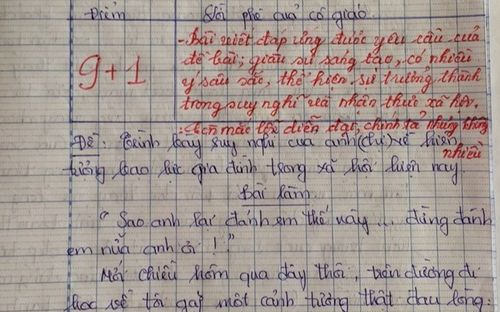 Điểm Lời phê của cô giáo
9+1
- Bài viết đáp ứng được yêu cầu của
đề bài; giàu sự sáng tạo, có nhiều
ý sâu sắc, thể hiện sự trưởng thành
trong suy nghĩ và nhận thức xã hội.
- Còn mắc lỗi diễn đạt, chính tả nhưng không
nhiều
Đề: Trình bày suy nghĩ của anh (chị) về hiện
tượng bạo lực gia đình trong xã hội hiện nay
Bài làm
"Sao anh lại đánh em thế này... đừng đánh
em nữa anh ơi!"
Mới chiều hôm qua đây thôi, trên đường đi
học về tôi gặp một cảnh tượng thật đau lòng: